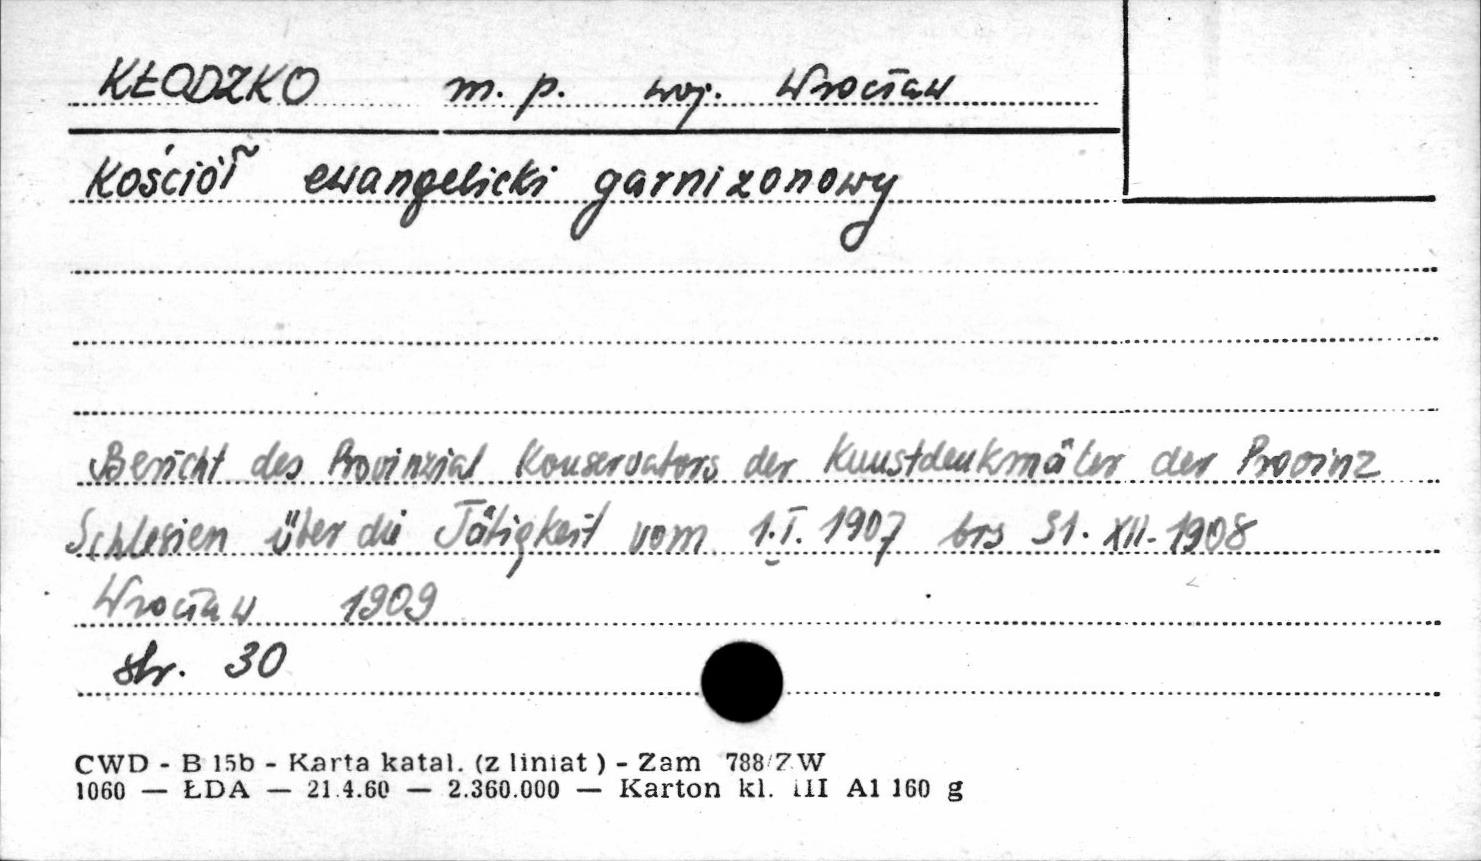 KŁODZKO m. p. woj. Wrocław
Kościół ewangelicki garnizonowy
Bericht des Provinzial Konservators der Kunstdenkmäler der Provinz
Schlesien über die Tätigkeit vom 1.I. 1907 bis 31. XII. 1908
Wrocław 1909
str. 30
CWD - B 15b - Karta katal. (z liniat) - Zam 788/ZW
1060 — ŁDA — 21.4.60 — 2.360.000 — Karton kl. III A1 160 g